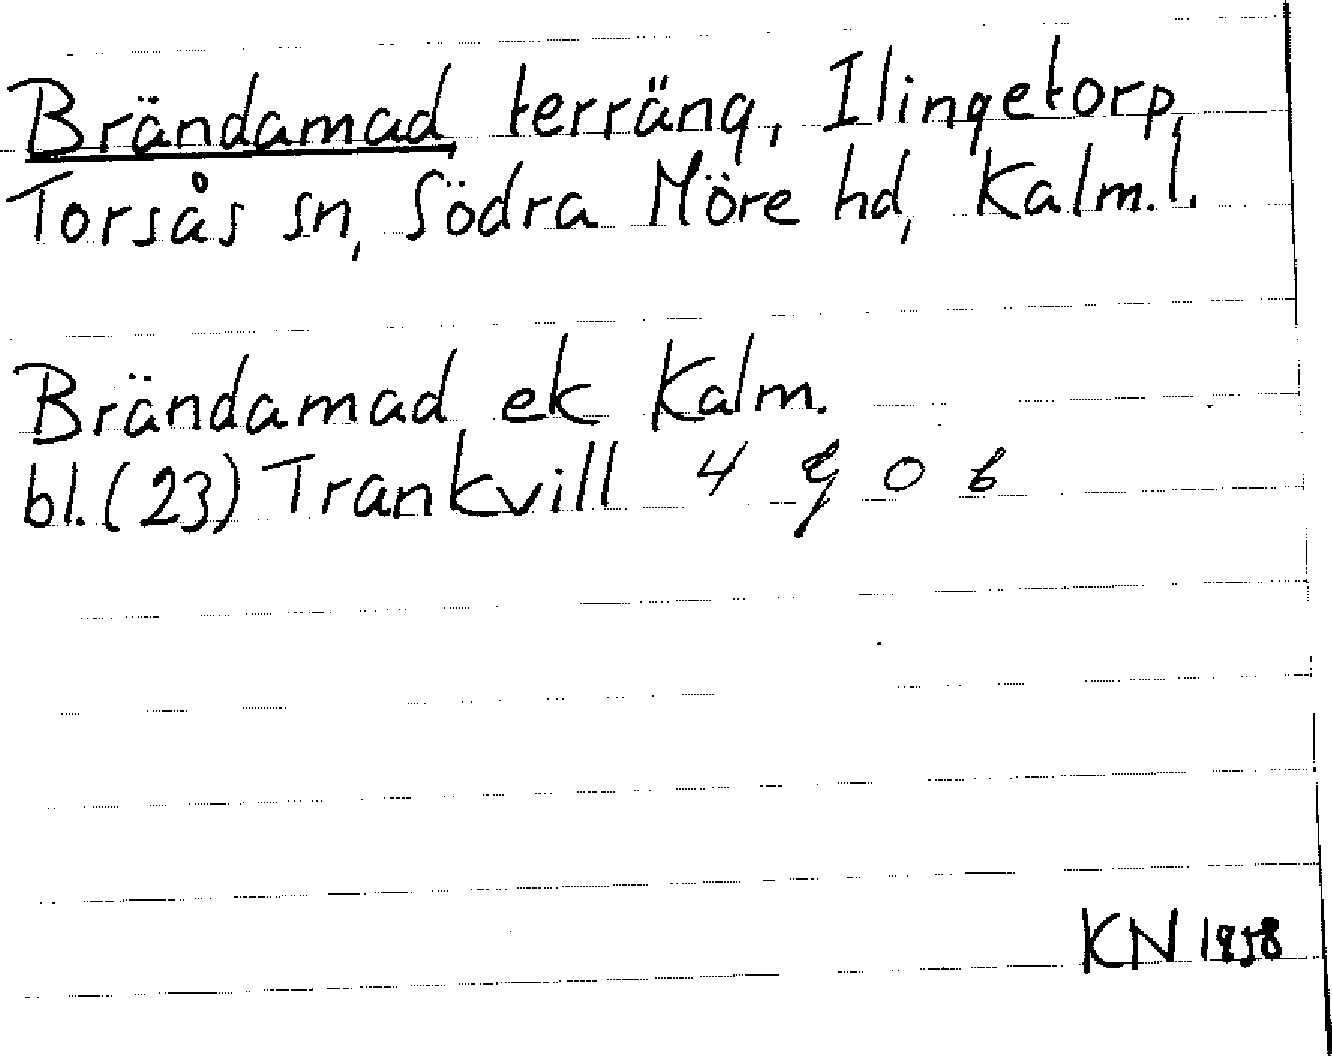 Brändamad, terräng, Ilingetorp,
Torsås sn, Södra Möre hd, Kalm.l.
Brändamad ek Kalm.
bl.(23) Trankvill 4 g 0 b
KN 1958